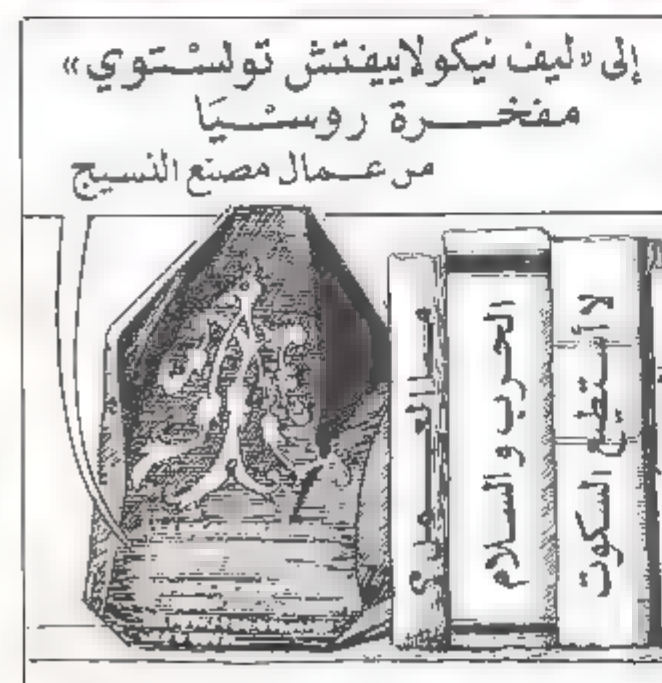 إلى «ليف نيكولاييفتش تولستوي»
مفخرة روسيا
من عمال مصنع النسيج
ما العمل؟
الحرب والسلام
لا أستطيع السكوت